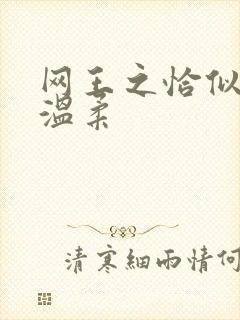 网王之恰似
温柔
清寒細雨情何